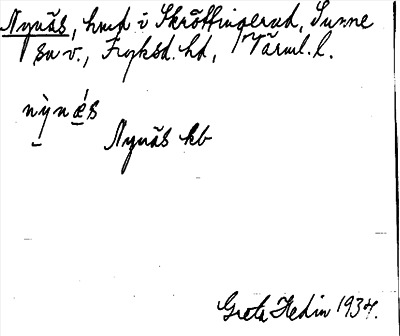 Nynäs, hmd i Skröffingerud, Sunne
sn v., Fryksd. hd, Värml. l.
nỳnǽs
Nynäs kb
Greta Hedin 1934.